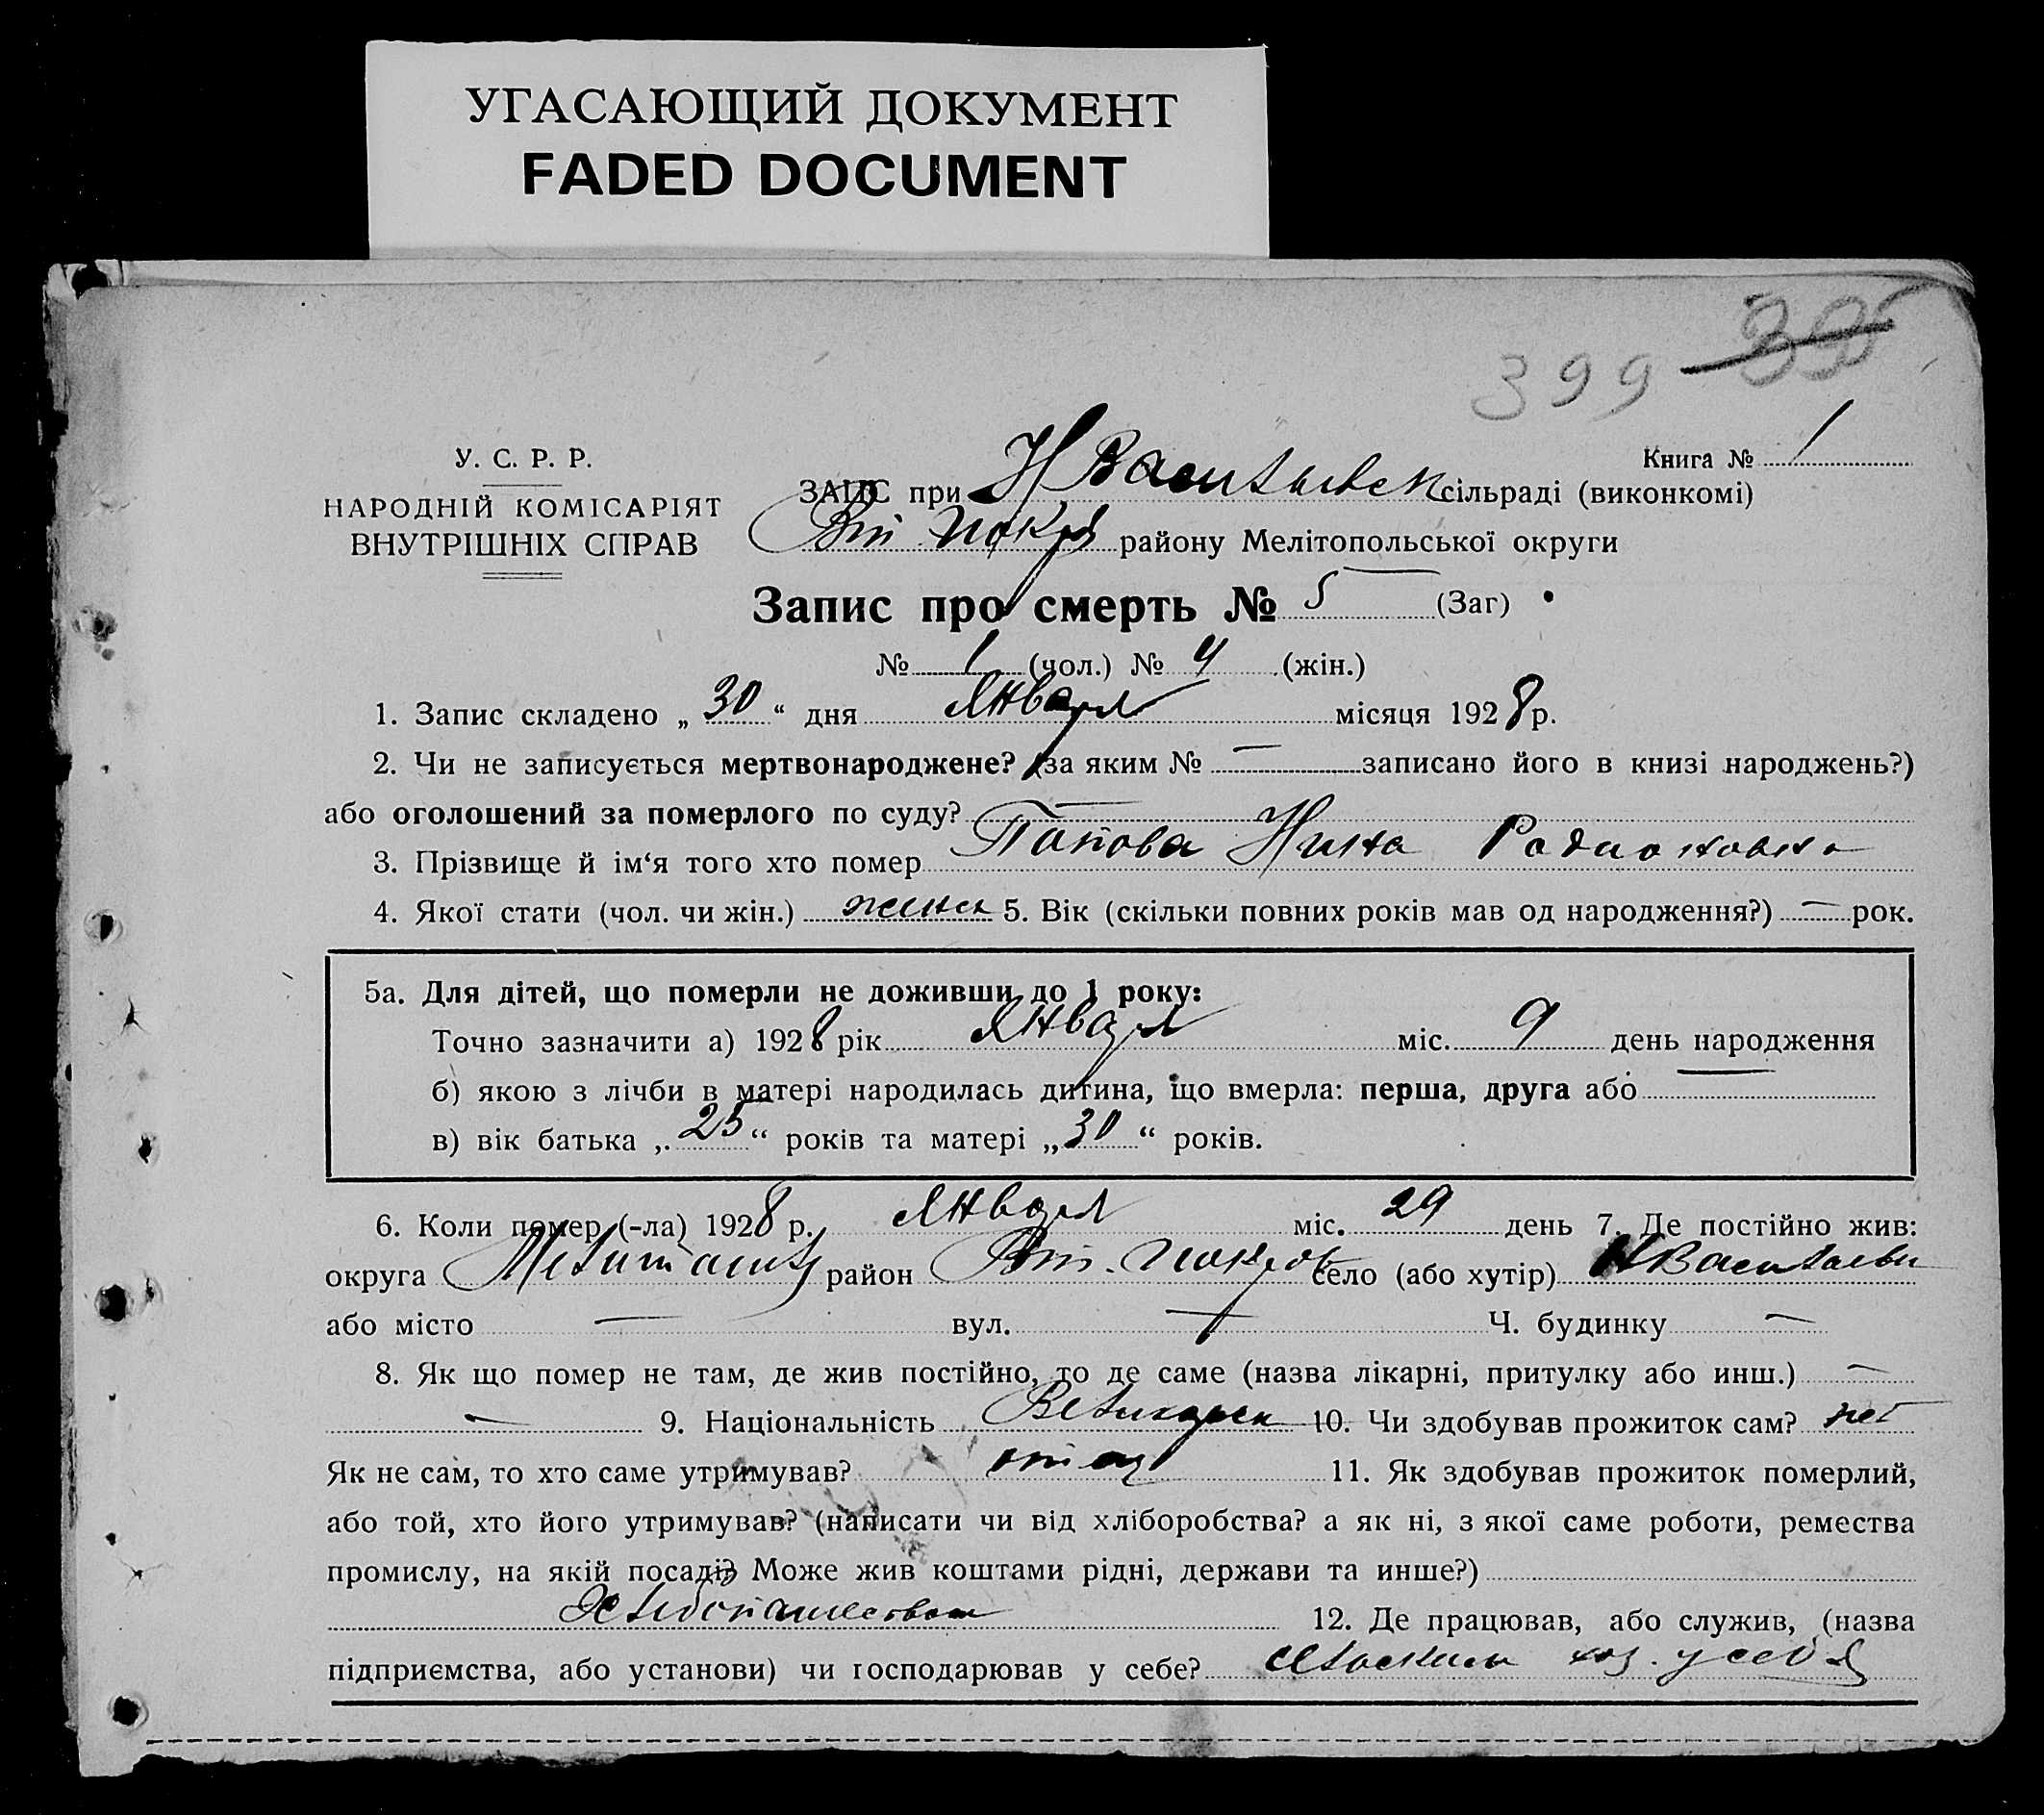 УГАСАЮЩИЙ ДОКУМЕНТ
FADED DOCUMENT
399 39
У. С. Р. Р.
НАРОДНІЙ КОМІСАРІЯТ
ВНУТРІШНІХ СПРАВ
Книга № 1
ЗАПС при Н Васильевск сільраді (виконкомі)
Вт Покр району Мелітопольської округи
Запис про смерть № 5 (Заг)
№ 1 (чол.) № 4 (жін.)
1. Запис складено „ 30 “ дня Января місяця 1928 р.
2. Чи не записується мертвонароджене? (за яким № — записано його в книзі народжень?)
або оголошений за померлого по суду? —
3. Прізвище й ім‘я того хто помер Попова Нина Радионовна
4. Якої стати (чол. чи жін.) женск 5. Вік (скільки повних років мав од народження?) — рок.
5а. Для дітей, що померли не доживши до 1 року:
Точно зазначити а) 1928 рік Января міс. 9 день народження
б) якою з лічби в матері народилась дитина, що вмерла: перша, друга або
в) вік батька „ 25 “ років та матері „ 30 “ років.
6. Коли помер (-ла) 1928 р. Января міс. 29 день 7. Де постійно жив:
округа район Вт. Покров село (або хутір) Н Васильевк
або місто — вул. — Ч. будинку —
8. Як що помер не там, де жив постійно, то де саме (назва лікарні, притулку або инш.) —
— 9. Національність Великорск 10. Чи здобував прожиток сам? нет
Як не сам, то хто саме утримував? отец 11. Як здобував прожиток померлий,
або той, хто його утримував? (написати чи від хліборобства? а як ні, з якої саме роботи, ремества
промислу, на якій посаді? Може жив коштами рідні, держави та инше?)
Хлебопашеством 12. Де працював, або служив, (назва
підприємства, або установи) чи господарював у себе? сельским хоз. у себя